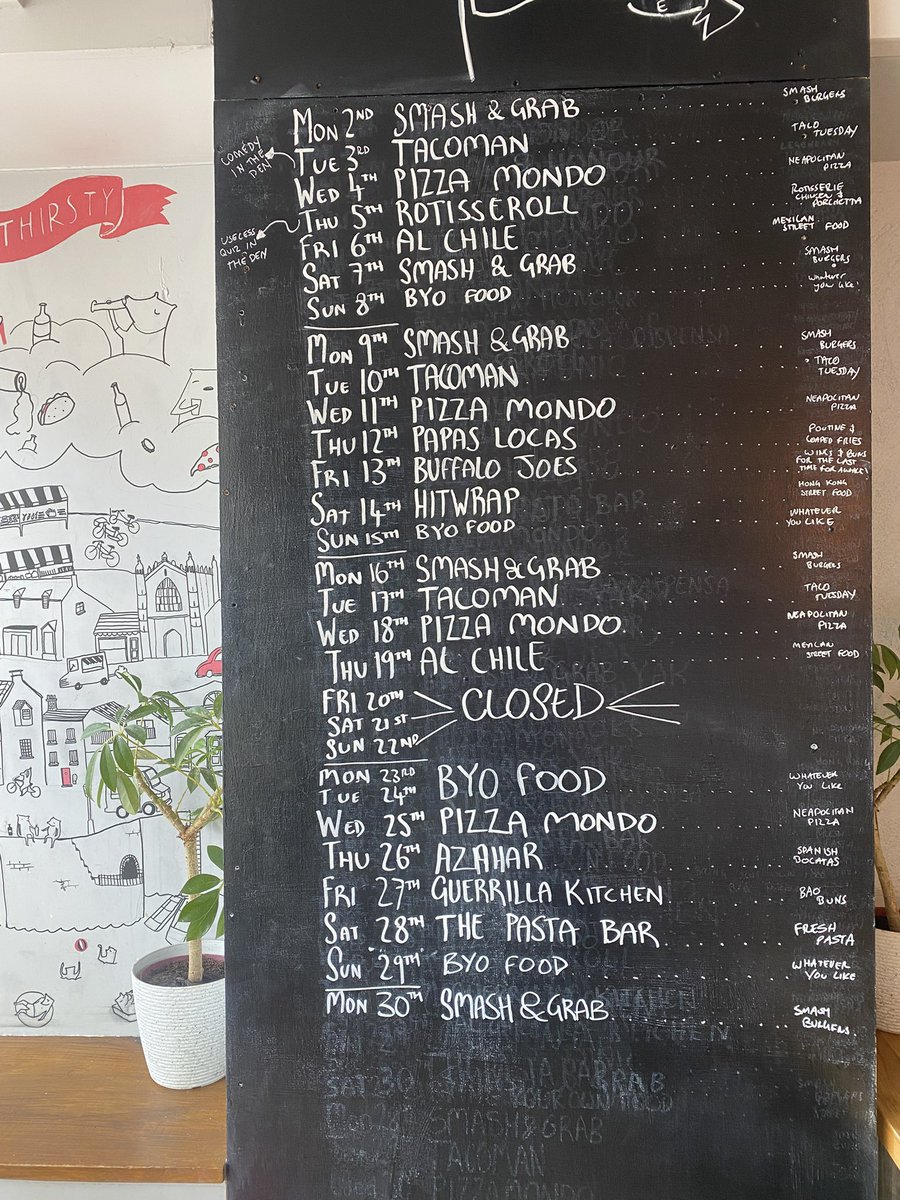 E
THIRSTY
COMEDY
IN THE
DEN
USELESS
QUIZ IN
THE DEN
MON 2ND SMASH & GRAB SMASH BURGERS
TUE 3RD TACOMAN TACO TUESDAY
WED 4TH PIZZA MONDO NEAPOLITAN PIZZA
THU 5TH ROTISSEROLL ROTISSERIE CHICKEN & PORCHETTA
FRI 6TH AL CHILE MEXICAN STREET FOOD
SAT 7TH SMASH & GRAB SMASH BURGERS
SUN 8TH BYO FOOD whatever you like!
MON 9TH SMASH & GRAB SMASH BURGERS
TUE 10TH TACOMAN TACO TUESDAY
WED 11TH PIZZA MONDO NEAPOLITAN PIZZA
THU 12TH PAPAS LOCAS POUTINE & LOADED FRIES
FRI 13TH BUFFALO JOES WINGS & BUNS FOR THE LAST TIME FOR AWHILE!
SAT 14TH HITWRAP HONG KONG STREET FOOD
SUN 15TH BYO FOOD WHATEVER YOU LIKE
MON 16TH SMASH & GRAB SMASH BURGERS
TUE 17TH TACOMAN TACO TUESDAY
WED 18TH PIZZA MONDO NEAPOLITAN PIZZA
THU 19TH AL CHILE MEXICAN STREET FOOD
FRI 20TH
SAT 21ST CLOSED
SUN 22ND
MON 23RD
TUE 24TH BYO FOOD WHATEVER YOU LIKE
WED 25TH PIZZA MONDO NEAPOLITAN PIZZA
THU 26TH AZAHAR SPANISH BOCATAS
FRI 27TH GUERRILLA KITCHEN BAO BUNS
SAT 28TH THE PASTA BAR FRESH PASTA
SUN 29TH BYO FOOD WHATEVER YOU LIKE
MON 30TH SMASH & GRAB SMASH BURGERS
SAT 30
SMASH & GRAB
TACOMAN
PIZZA MONDO